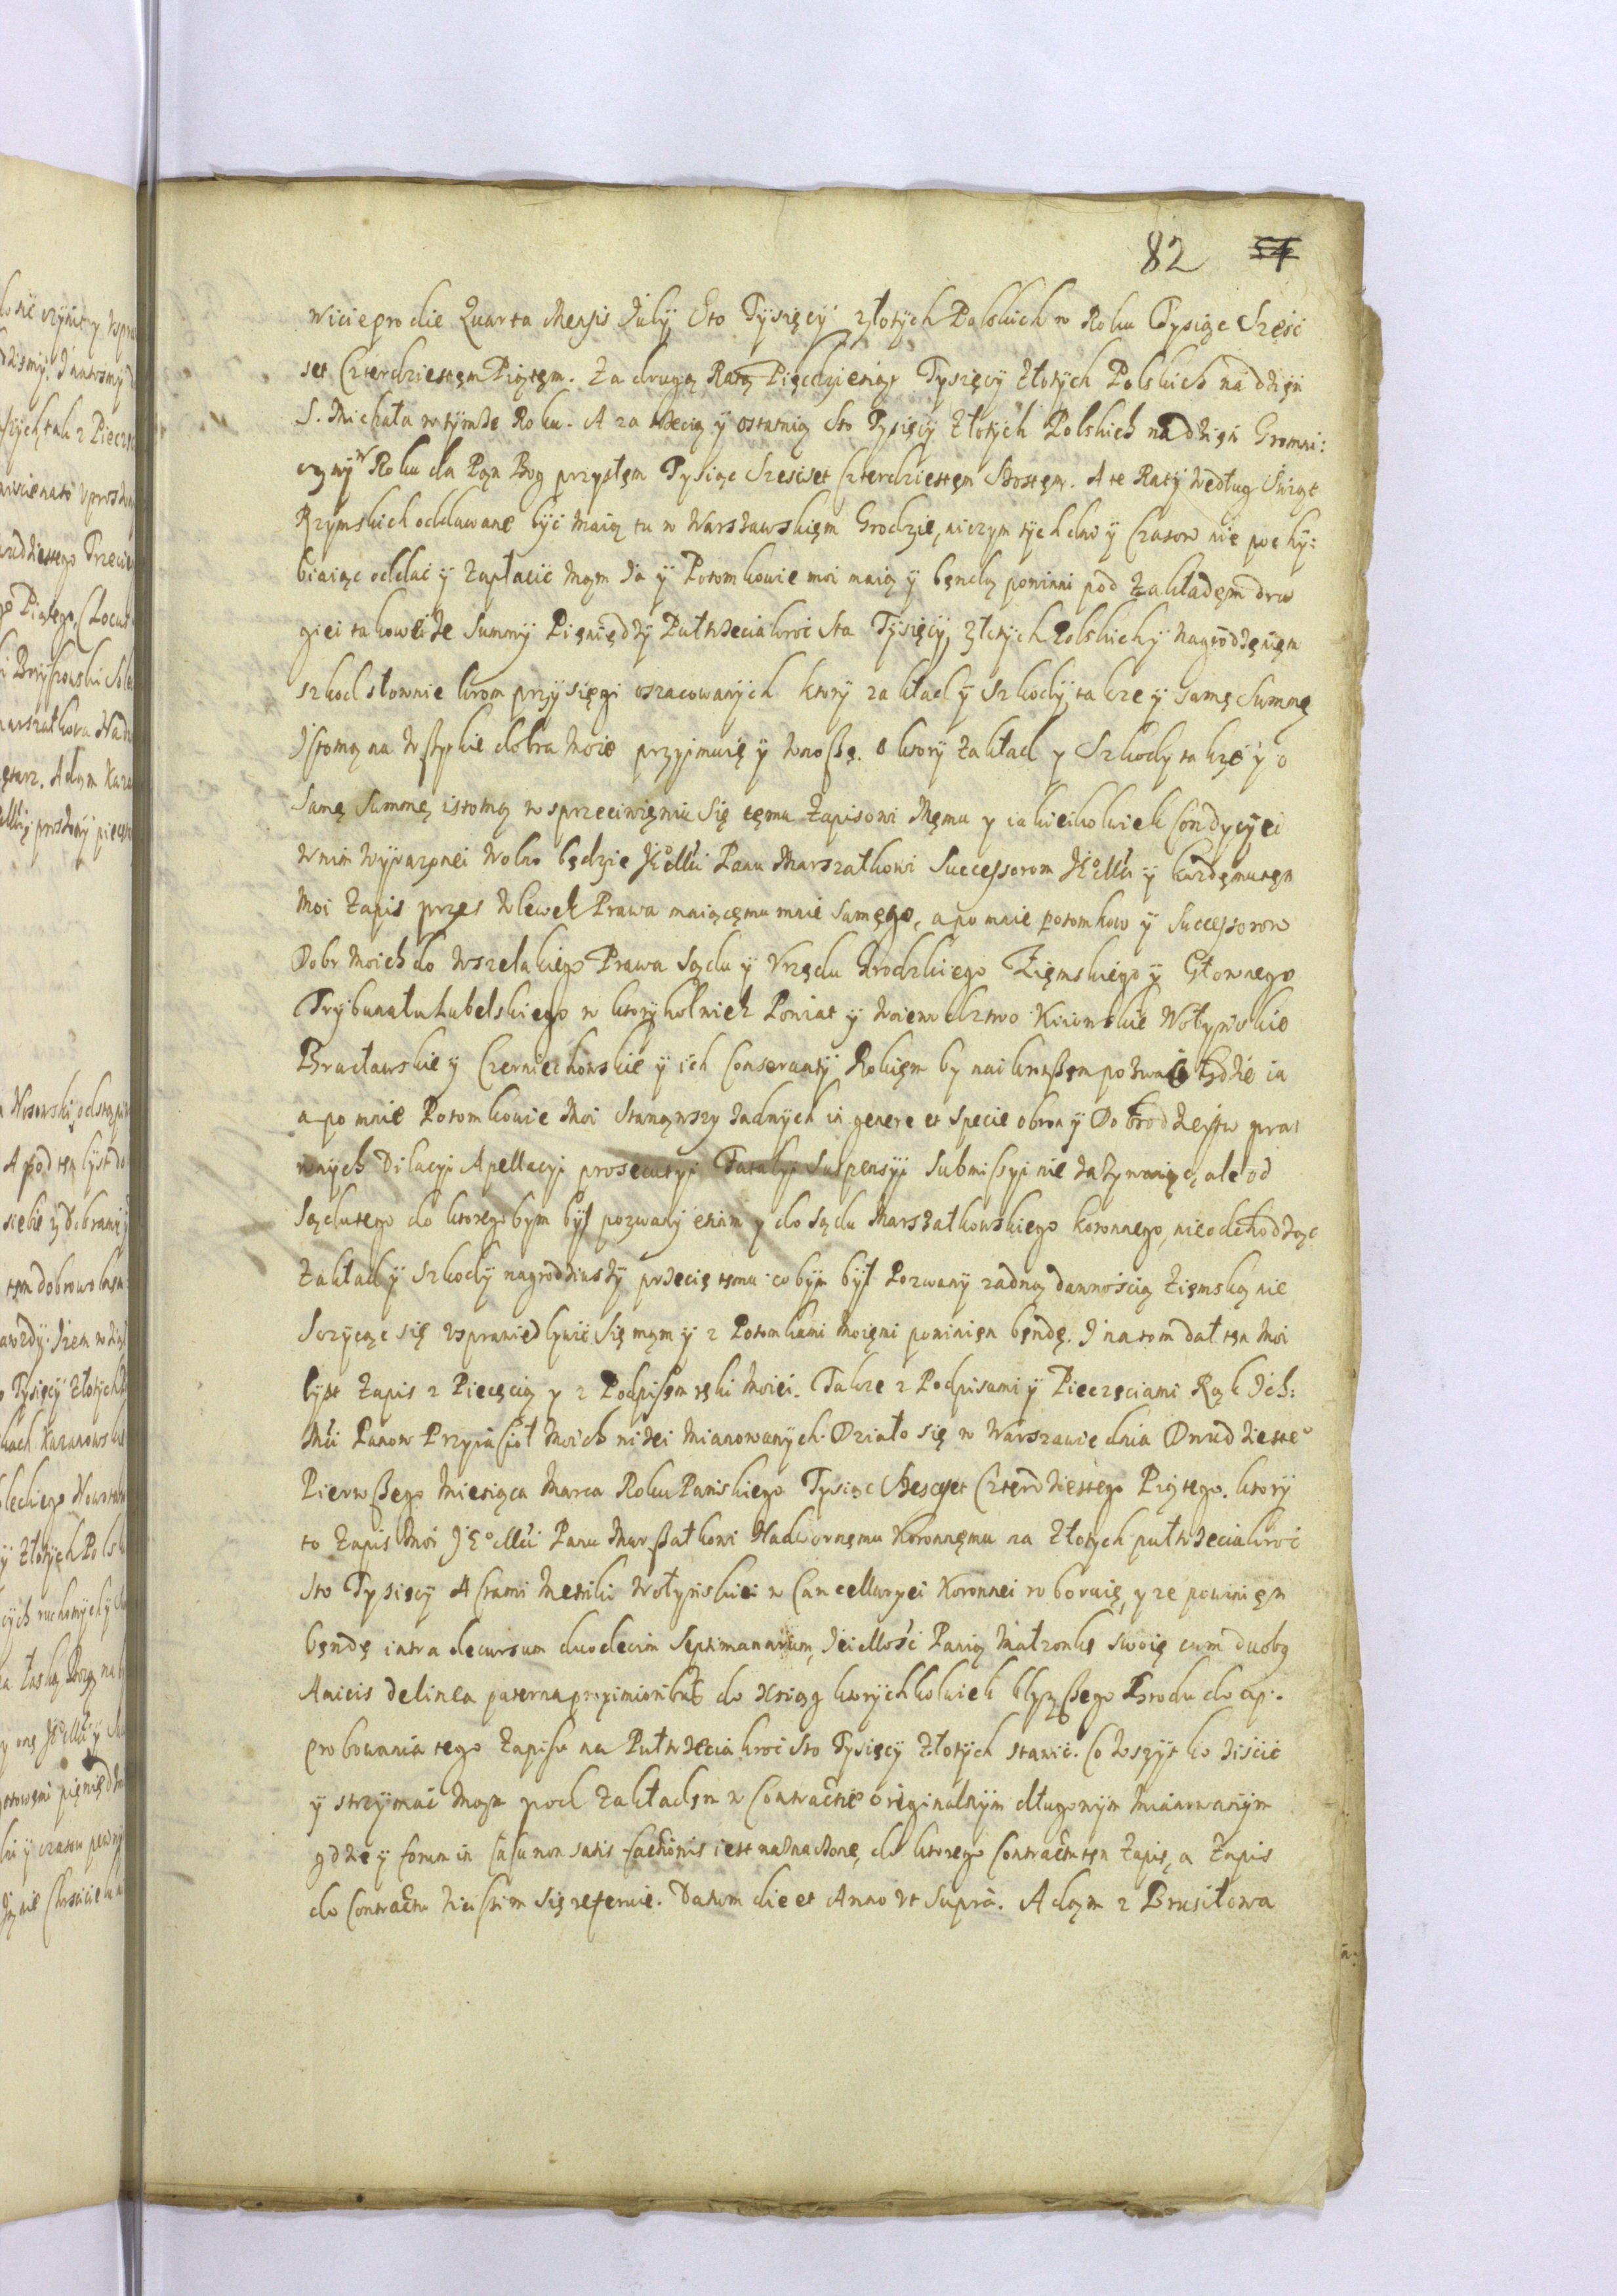 82 54
wicie pro die Quarta Mensis July Sto Tysięcy złotych Polskich w Roku Tysiąc Sześć
set Czterdziestęm Piątęm. Za drugą Ratę Pięcdziesiąt Tysięcy Złotych Polskich na dzięń
S. Michała w tymże Roku. A za trzecią y ostatnią Sto Tysięcy Złotych Polskich na dzięń Gromni:
czny w Roku da Pąn Bog przyszłęm Tysiąc Szescset Czterdziestęm Szostęm. A te Raty według Swiąt
Rzymskich oddawane być maią tu w Warszawskięm Grodzie, niczym tych dni y Czasow nie pochy:
biaiąc oddać y zapłacić mąm Ja y Potomkowie moi maią y będą powinni pod Zakładęm dru
giei takoweiże Summy Pięniędzy Pułtrzeciakroć sta Tysięcy Złotych Polskich y nagrodzęnięm
szkod słownie krom przysięgi oszacowanych ktory zakład y szkody, także y samę Summę
Istotną na wszytkie dobra moie przyjmuię y wnoszę. O ktory Zakład y Szkody także y o
Samę Summę istotną w sprzeciwięniu się tęmu Zapisowi Męmu y iakieikolwiek Condycyei
w nim wyrazonei wolno będzie JEo Mći Panu Marszałkowi Successorom JEo Mći y każdęmu tęn
Moi Zapis przes wlewek Prawa maiącęmu mnie samęgo, a po mnie potomkow y Successorow
Dobr moich do wszelakiego Prawa Sądu y Vrzędu Grodzkiego Zięmskiego y Głownego
Trybunału Lubelskiego w ktorykolwiek Powiat y Woiewodztwo Kiiowskie Wołyńskie
Bracławskie y Czerniechowskie y ich Conservaty Rokięm by naikrotszęm pozwać gdzie ia
a po mnie Potomkowie Moi stanąwszy żadnych in genere et specie obron y Dobrodzeystw pra
wnych Dilacyi Apellacyi prosecutyi Fatalyi Suspensyi Submissyi nie zażywaiąc, ale od
Sądu tego do ktorego bym był pozwany etiam y do sądu Marszałkowskiego koronnego, nie odchodząc
Zakład y szkody nagrodziwszy przecię tęmu o co bym był Pozwany zadną dawnością Zięmską nie
Szczycąc się vsprawiedlywić się mąm y z Potomkami moięmi powinięn będę. I na tom dał tęn Moi
lyst Zapis z Pieczęcią y z Podpisęm ręki Moiei. Także z Podpisami y Pieczęciami Rąk Ich:
Mći Panow Przyiacioł Moich niżei mianowanych. Działo się w Warszawie dnia Dwudzieste°
Pierwszego Miesiąca Marca Roku Pańskiego Tysiąc Szescset Czterdziestego Piątego. ktory
to Zapis Moi JEo Mći Panu Marszałkowi Nadwornęmu Koronnęmu na Złotych pułtrzeciakroć
sto Tysięcy Actami Metriki Wołyńskiei w Cancellaryei Koronnei roboruię, y ze powinięn
będę intra decursum duodecim Septimanarum, Jei Mość Panią Małzonkę swoię cum duobus
Amicis de linea paterna proximioribus do Xsiąg ktorychkolwiek blyższego Grodu do ap:
probowania tego Zapisu na Pułtrzeciakroć sto Tysięcy Złotych stawić. Co wszytko ziścić
y strzymać mąm pod Zakładęm w Contractie originalnym długowym mianowanym
gdzie y forum in casu non satisfactionis iest naznaczone, do ktorego Contractu tęn Zapis, a Zapis
do Contractu się referuie. Datum die et Anno vt Supra. Adąm z Brusiłowa